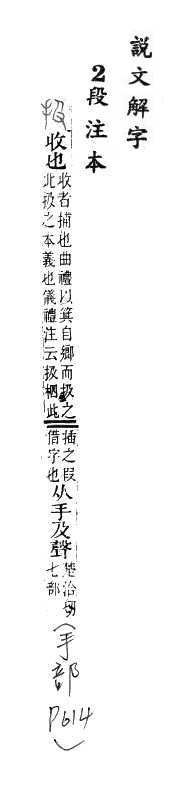 説文解字
2段注本
扱收也
收者捕也曲禮以箕自鄉而扱之
此扱之本義也儀禮注云扱柶此
插之叚
借字也
从手及聲
楚洽切
七部
(手部P614)